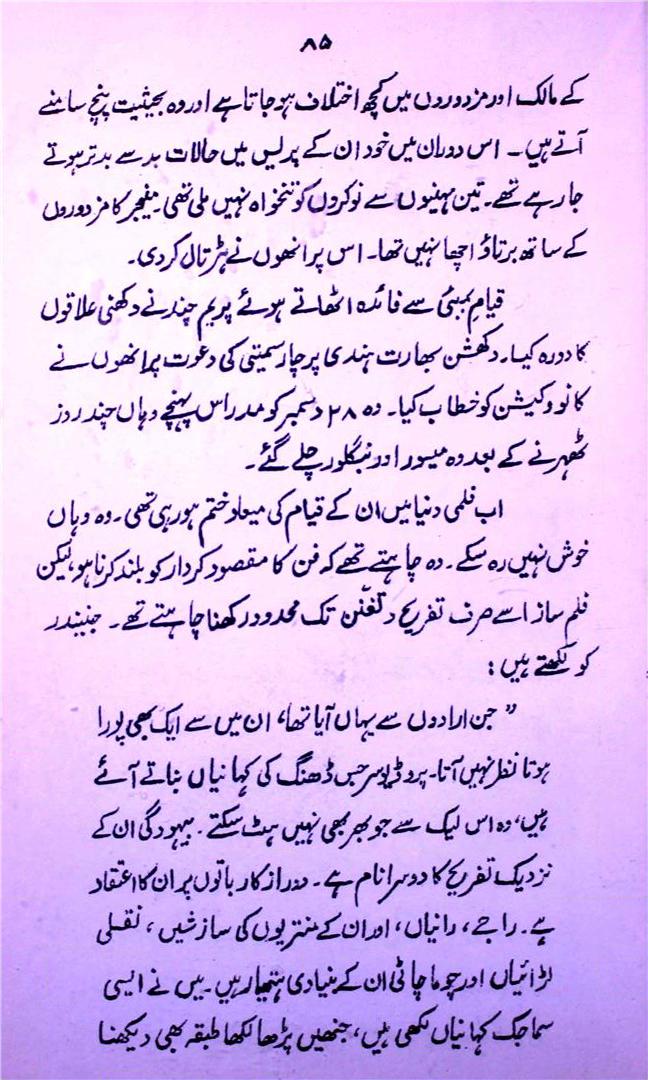 ۸۵
کے مالک اور مزدوروں میں کچھ اختلاف ہوجاتا ہے اور وہ بحیثیت پنچ سامنے
آتے ہیں۔ اس دوران میں خود ان کے پریس میں حالات بد سے بدتر ہوتے
جارہے تھے۔ تین مہینوں سے نوکروں کو تنخواہ نہیں ملی تھی۔ منیجر کا مزدوروں
کے ساتھ برتاؤ اچھا نہیں تھا۔ اس پر انھوں نے ہڑتال کردی۔
قیام بمبئی سے فائدہ اٹھاتے ہوئے پریم چند نے دکھنی علاقوں
کا دورہ کیا۔ دکھشن بھارت ہندی پرچار سمیتی کی دعوت پر انھوں نے
کانووکیشن کو خطاب کیا۔ وہ ۲۸ دسمبر کو مدراس پہنچے وہاں چند روز
ٹھہرنے کے بعد وہ میسور اور بنگلور چلے گئے۔
اب فلمی دنیا میں ان کے قیام کی میعاد ختم ہورہی تھی۔ وہ وہاں
خوش نہیں رہ سکے۔ وہ چاہتے تھے کہ فن کا مقصود کردار کو بلند کرنا ہو، لیکن
فلم ساز اسے صرف تفریح و تفنّن تک محدود رکھنا چاہتے تھے۔ جنیندر
کو لکھتے ہیں:
”جن ارادوں سے یہاں آیا تھا، ان میں سے ایک بھی پورا
ہوتا نظر نہیں آتا۔ پروڈیوسر جس ڈھنگ کی کہانیاں بناتے آئے
ہیں، وہ اس لیک سے جو بھر بھی نہیں ہٹ سکتے۔ بیہودگی ان کے
نزدیک تفریح کا دوسرا نام ہے۔ دوراز کار باتوں پر ان کا اعتقاد
ہے۔ راجے، رانیاں، اور ان کے منتریوں کی سازشیں، نقلی
لڑائیاں اور چوما چاٹی ان کے بنیادی ہتھیار ہیں۔ میں نے ایسی
سماجک کہانیاں لکھی ہیں، جنھیں پڑھا لکھا طبقہ بھی دیکھنا